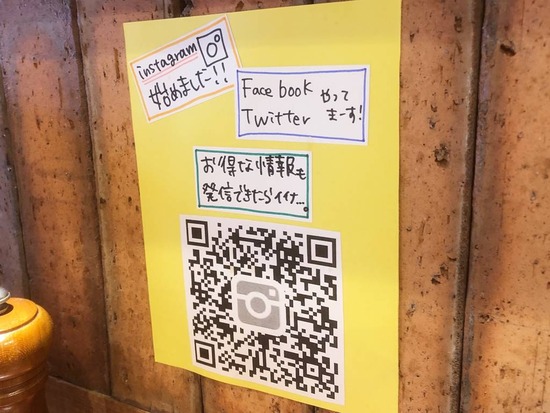 instagram
始めました!!
Face book
Twitter
やって
まーす!
お得な情報も
発信できたらイイナ...。